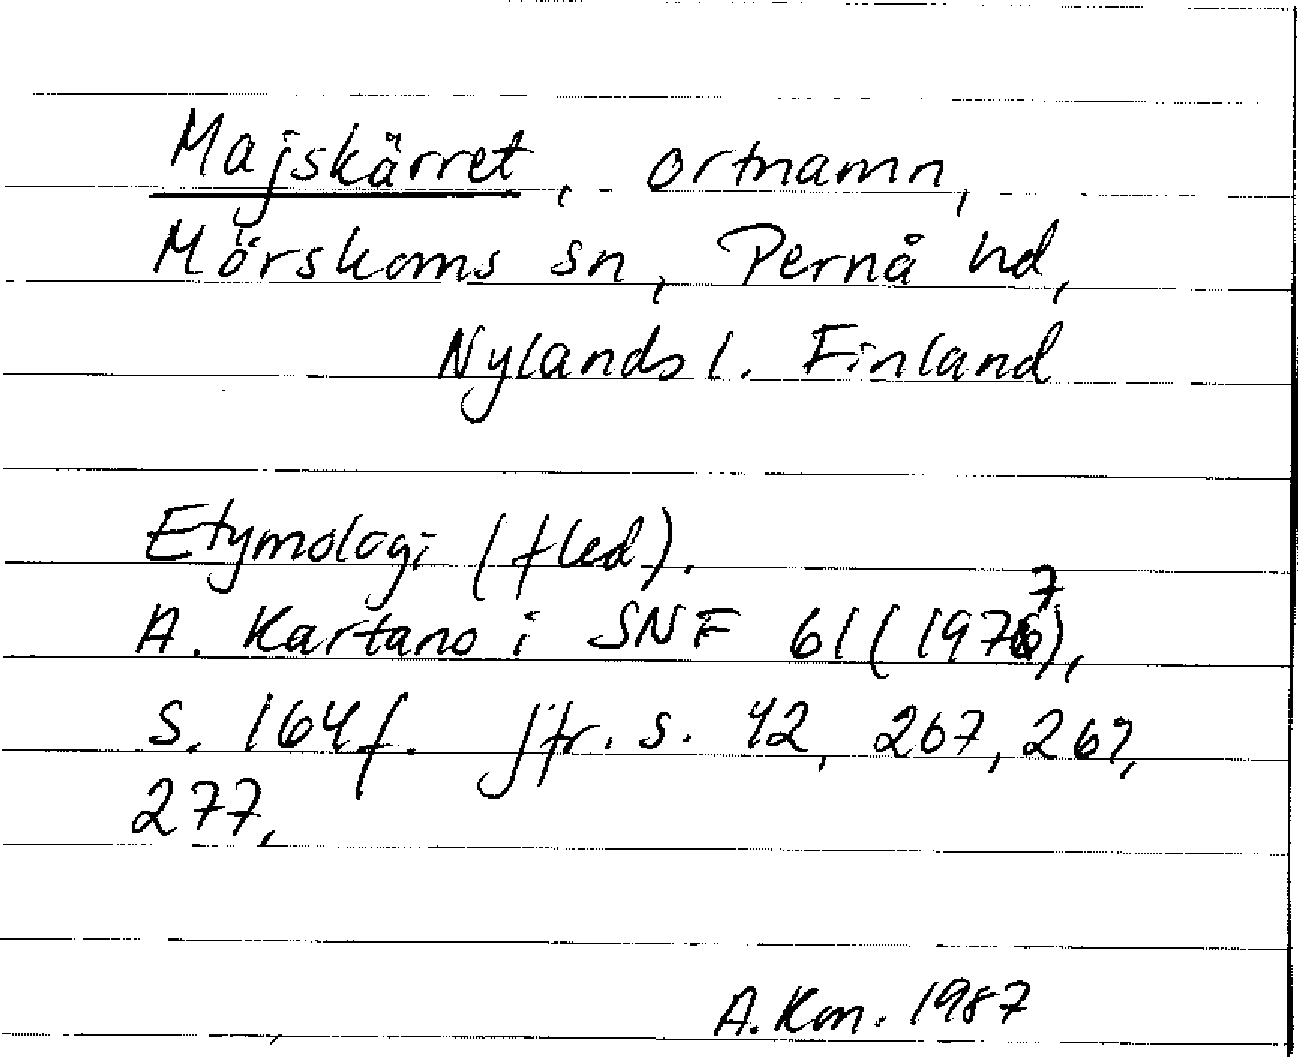 Majskärret, ortnamn,
Mörskoms sn, Pernå hd,
Nylands l. Finland
Etymologi (fled).
A. Kartano i SNF 61 (1977),
s. 164 f. Jfr. s. 42, 267, 269,
277,
A. Kon. 1987